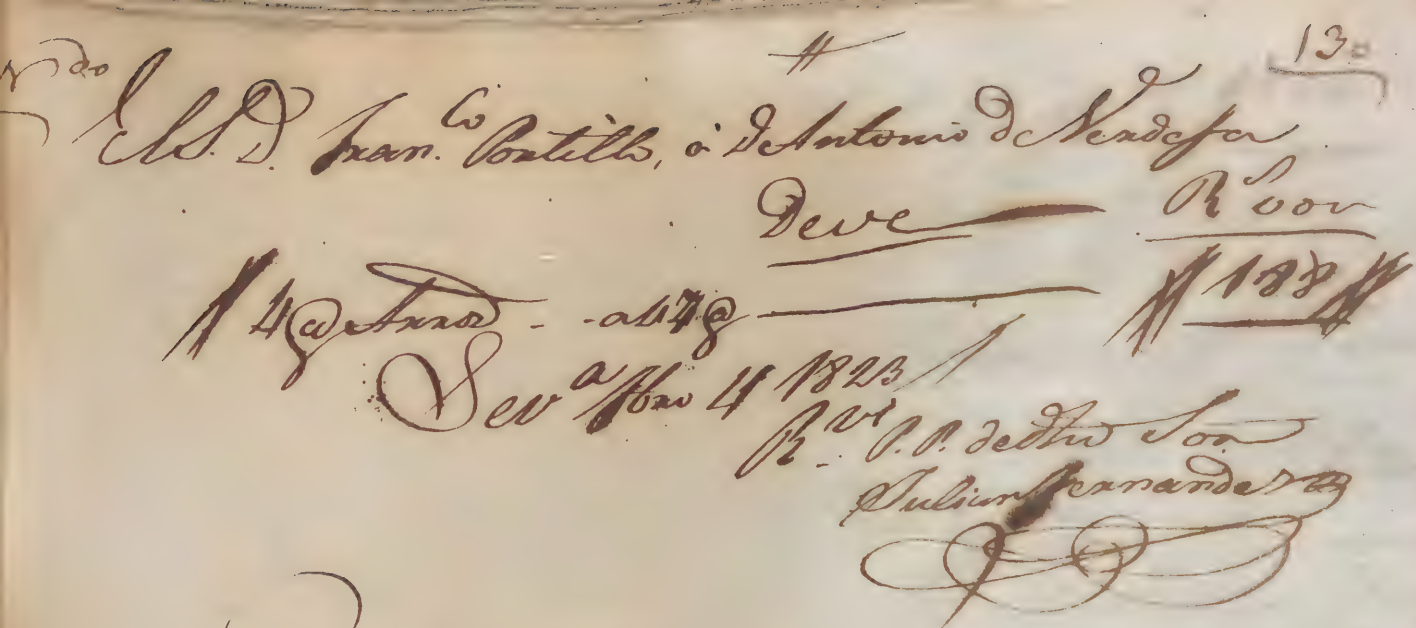 13
El S. D. Fran.co Portillo, á D Antonio de
Deve R.s von
4 @ Arroz - - a 47 @ 188
Sev.a 4 1823
R.ví P.P. de dho Sor
Julian Fernandez